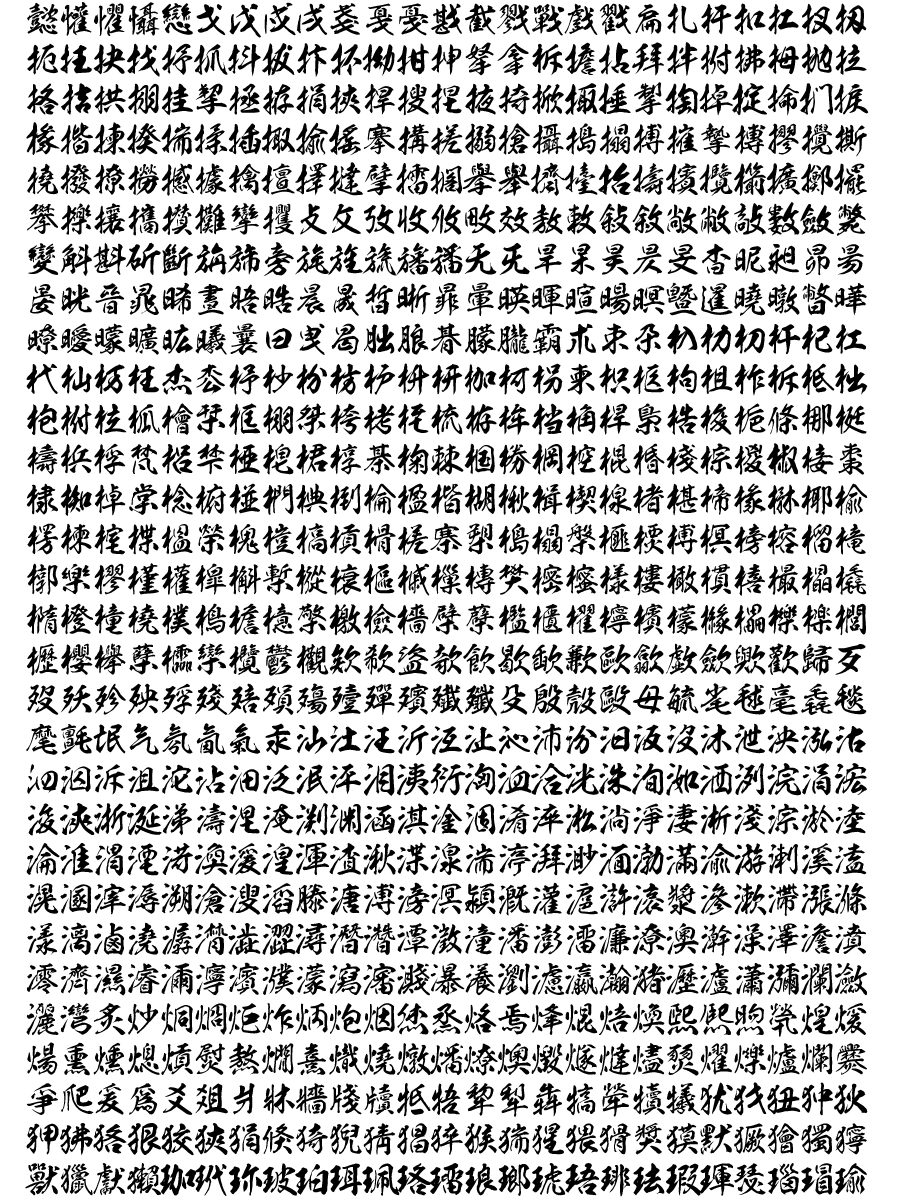 懿懽懼懾戀戈戊戌戍戔戛戞戡截戮戰戲戳扁扎扞扣扛扠扨
扼抂抉找抒抓抖拔抃抔拗拑抻拏拿拆擔拈拜拌拊拂拇抛拉
挌拮拱挧挂挈拯拵捐挾捍搜捏掖掎掀掫捶掣掏掉掟掵捫捩
掾揩揀揆揣揉插揶揄搖搴搆搓搦搶攝搗搨搏摧摯摶摎攪撕
撓撥撩撈撼據擒擅擇撻擘擂擱擧舉擠擡抬擣擯攬擶擴擲擺
攀擽攘攜攅攤攣攫攴攵攷收攸畋效敖敕敍敘敞敝敲數斂斃
變斛斟斫斷旃旆旁旄旌旒旛旙无旡旱杲昊昃旻杳昵昶昴昜
晏晄晉晁晞晝晤晧晨晟晢晰暃暈暎暉暄暘暝曁暹曉暾暼曄
暸曖曚曠昿曦曩曰曳曷朏朖朞朦朧霸朮朿朶杁朸朷杆杞杠
杙杣杤枉杰枩杼杪枌枋枦枡枅枷柯枴柬枳柩枸柤柞柝柢柮
枹柎柆柧檜栞框栩桀桍栲桎梳栫桙档桷桿梟梏梭梔條梛梃
檮梹桴梵梠梺椏梍桾椁棊椈棘椢椦棡椌棍棔棧棕椶椒椄棗
棣椥棹棠棯椨椪椚椣椡棆楹楷楜楸楫楔楾楮椹楴椽楙椰楡
楞楝榁楪榲榮槐榿槁槓榾槎寨槊槝榻槃榧樮榑榠榜榕榴槞
槨樂樛槿權槹槲槧樅榱樞槭樔槫樊樒櫁樣樓橄樌橲樶橸橇
橢橙橦橈樸樢檐檍檠檄檢檣檗蘗檻櫃櫂檸檳檬櫞櫑櫟檪櫚
櫪櫻欅蘖櫺欒欖鬱欟欸欷盜欹飮歇歃歉歐歙歔歛歟歡歸歹
歿殀殄殃殍殘殕殞殤殪殫殯殲殱殳殷殼毆毋毓毟毬毫毳毯
麾氈氓气氛氤氣汞汕汢汪沂沍沚沁沛汾汨汳沒沐泄泱泓沽
泗泅泝沮沱沾沺泛泯泙泪洟衍洶洫洽洸洙洵洳洒洌浣涓浤
浚浹浙涎涕濤涅淹渕淵涵淇淦涸淆淬淞淌淨淒淅淺淙淤淕
淪淮渭湮渮渙湲湟渾渣湫渫湶湍渟湃渺湎渤滿渝游溂溪溘
滉溷滓溽溯滄溲滔滕溏溥滂溟潁漑灌滬滸滾漿滲漱滯漲滌
漾漓滷澆潺潸澁澀潯潛濳潭澂潼潘澎澑濂潦澳澣澡澤澹濆
澪濟濕濬濔濘濱濮濛瀉瀋濺瀑瀁瀏濾瀛瀚潴瀝瀘瀟瀰瀾瀲
灑灣炙炒炯烱炬炸炳炮烟烋烝烙焉烽焜焙煥煕熈煦煢煌煖
煬熏燻熄熕熨熬燗熹熾燒燉燔燎燠燬燧燵燼燹燿爍爐爛爨
爭爬爰爲爻爼爿牀牆牋牘牴牾犂犁犇犒犖犢犧犹犲狃狆狄
狎狒狢狠狡狹狷倏猗猊猜猖猝猴猯猩猥猾獎獏默獗獪獨獰
獸獵獻獺珈玳珎玻珀珥珮珞璢琅瑯琥珸琲琺瑕琿瑟瑙瑁瑜